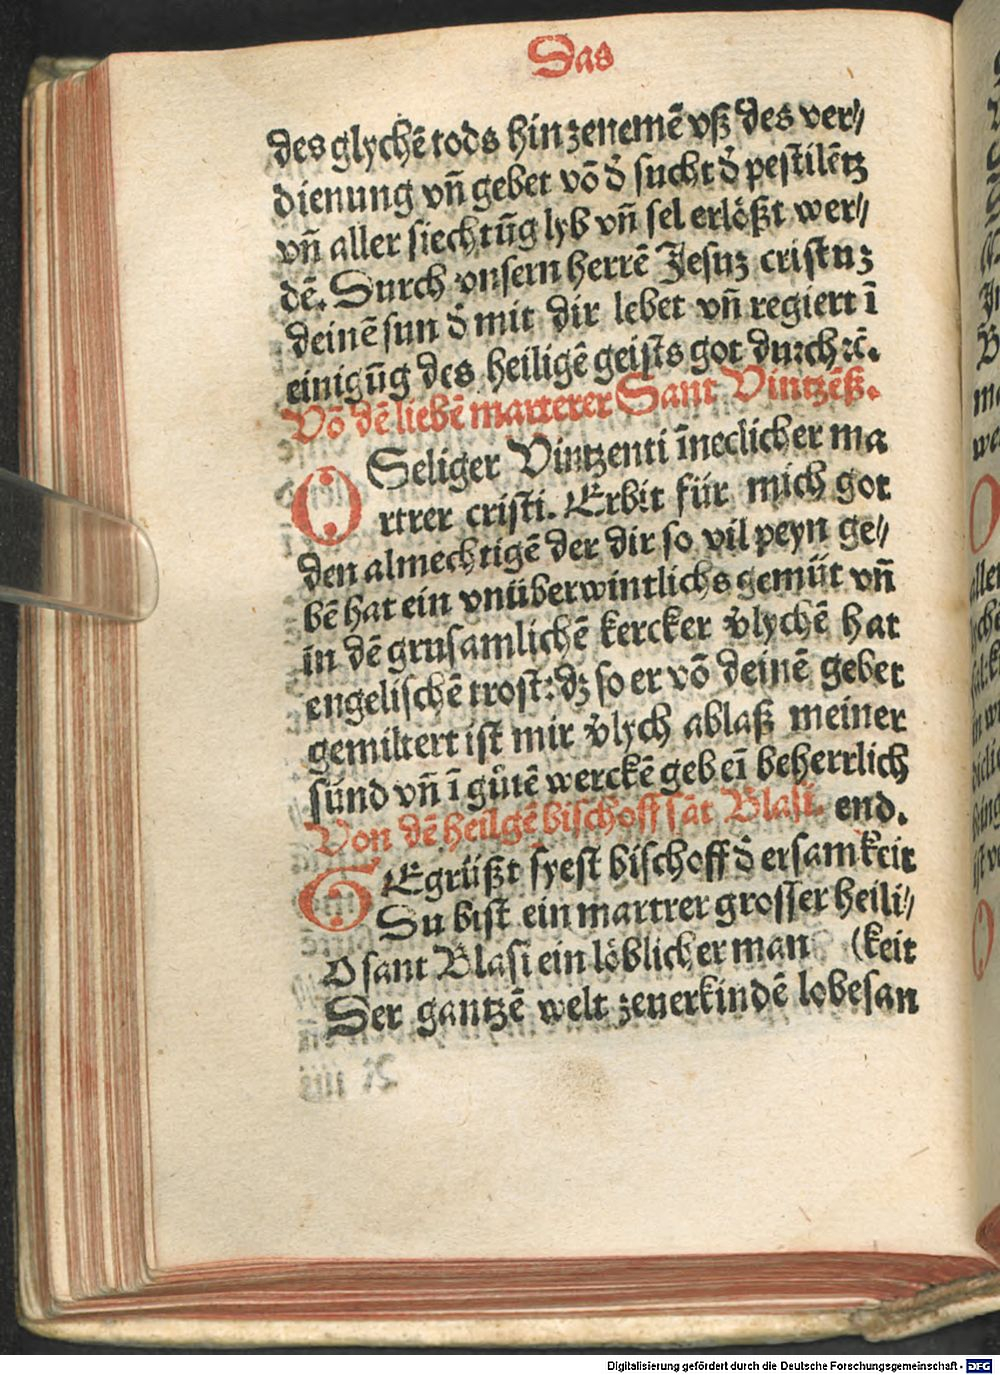 Das
des glychē tods hin zenemē vß des ver⸗
dienung vn̄ gebet vō d̓ sucht d̓ pestilētz
vn̄ aller siechtūg lyb vn̄ sel erlößt wer⸗
dē. Durch vnsern herrē Jesuz cristuz
deinē sun d̓ mit dir lebet vn̄ regiert ī
einigūg des heiligē geists got durch ꝛc̄.
Vō dē liebē marterer Sant Vintzēß.
O Seliger Vintzenti īneclicher ma
rtrer cristi. Erbit für mich got
den almechtigē der dir so vil peyn ge⸗
bē hat ein vnüberwintlichs gemüt vn̄
in dē grusamlichē kercker v̓lychē hat
engelischē trost: dz so er vō deinē gebet
gemiltert ist mir v̓lych ablaß meiner
sünd vn̄ ī gůtē werckē geb eī beherrlich
Von dē heilgē bischoff sāt Blasi. end.
GEgrüßt syest bischoff d̓ ersamkeit
Du bist ein martrer grosser heili⸗
O sant Blasi ein löblicher man (keit
Der gantzē welt zeuerkindē lobesan
Digitalisierung gefördert durch die Deutsche Forschungsgemeinschaft - DFG